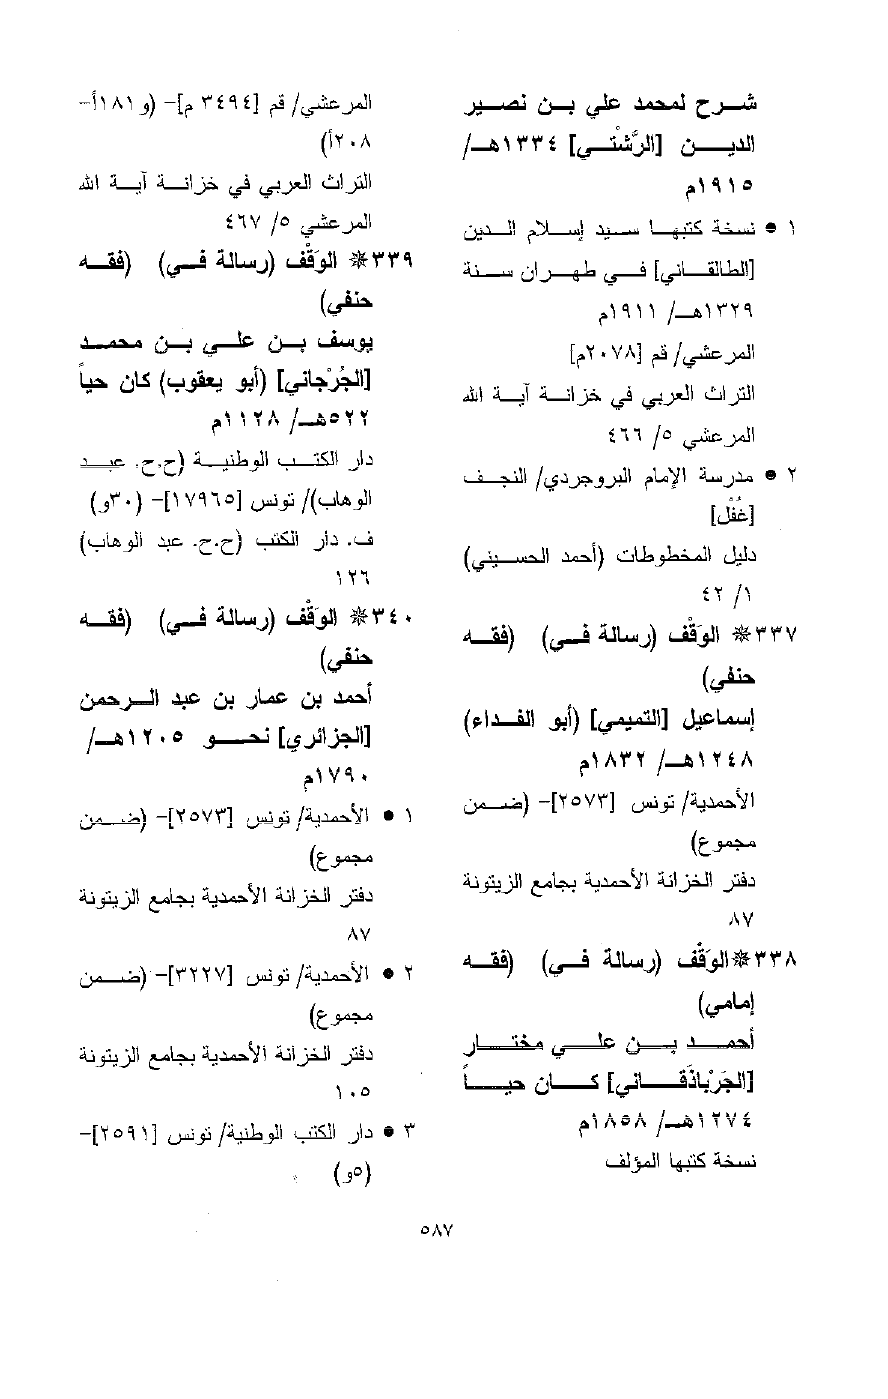 شرح لمحمد علي بن نصير
الدين [الرَّشْتي] ١٣٣٤هـ/
١٩١٥م
١ ● نسخة كتبها سيد إسلام الدين
[الطالقاني] في طهران سنة
١٣٢٩هـ/ ١٩١١م
المرعشي/ قم [٢٠٧٨م]
التراث العربي في خزانة آية الله
المرعشي ٥/ ٤٦٦
٢ ● مدرسة الإمام البروجردي/ النجف
[غُفْل]
دليل المخطوطات (أحمد الحسيني)
١/ ٤٢
٣٣٧※ الوَقْف (رسالة في) (فقه
حنفي)
إسماعيل [التميمي] (أبو الفداء)
١٢٤٨هـ/ ١٨٣٢م
الأحمدية/ تونس [٢٥٧٣]- (ضمن
مجموع)
دفتر الخزانة الأحمدية بجامع الزيتونة
٨٧
٣٣٨※الوَقْف (رسالة في) (فقه
إمامي)
أحمد بن علي مختار
[الجَرْباذَقاني] كان حياً
١٢٧٤هـ/ ١٨٥٨م
نسخة كتبها المؤلف
المرعشي/ قم [٣٤٩٤ م]- (و ١٨١أ-
٢٠٨أ)
التراث العربي في خزانة آية الله
المرعشي ٥/ ٤٦٧
٣٣٩※ الوَقْف (رسالة في) (فقه
حنفي)
يوسف بن علي بن محمد
[الجُرْجاني] (أبو يعقوب) كان حياً
٥٢٢هـ/ ١١٢٨م
دار الكتب الوطنية (ح.ح. عبد
الوهاب)/ تونس [١٧٩٦٥]- (٣٠و)
ف. دار الكتب (ح.ح. عبد الوهاب)
١٢٦
٣٤٠※ الوَقْف (رسالة في) (فقه
حنفي)
أحمد بن عمار بن عبد الرحمن
[الجزائري] نحو ١٢٠٥هـ/
١٧٩٠م
١ ● الأحمدية/ تونس [٢٥٧٣]- (ضمن
مجموع)
دفتر الخزانة الأحمدية بجامع الزيتونة
٨٧
٢ ● الأحمدية/ تونس [٣٢٢٧]- (ضمن
مجموع)
دفتر الخزانة الأحمدية بجامع الزيتونة
١٠٥
٣ ● دار الكتب الوطنية/ تونس [٢٥٩١]-
(٥و)
٥٨٧